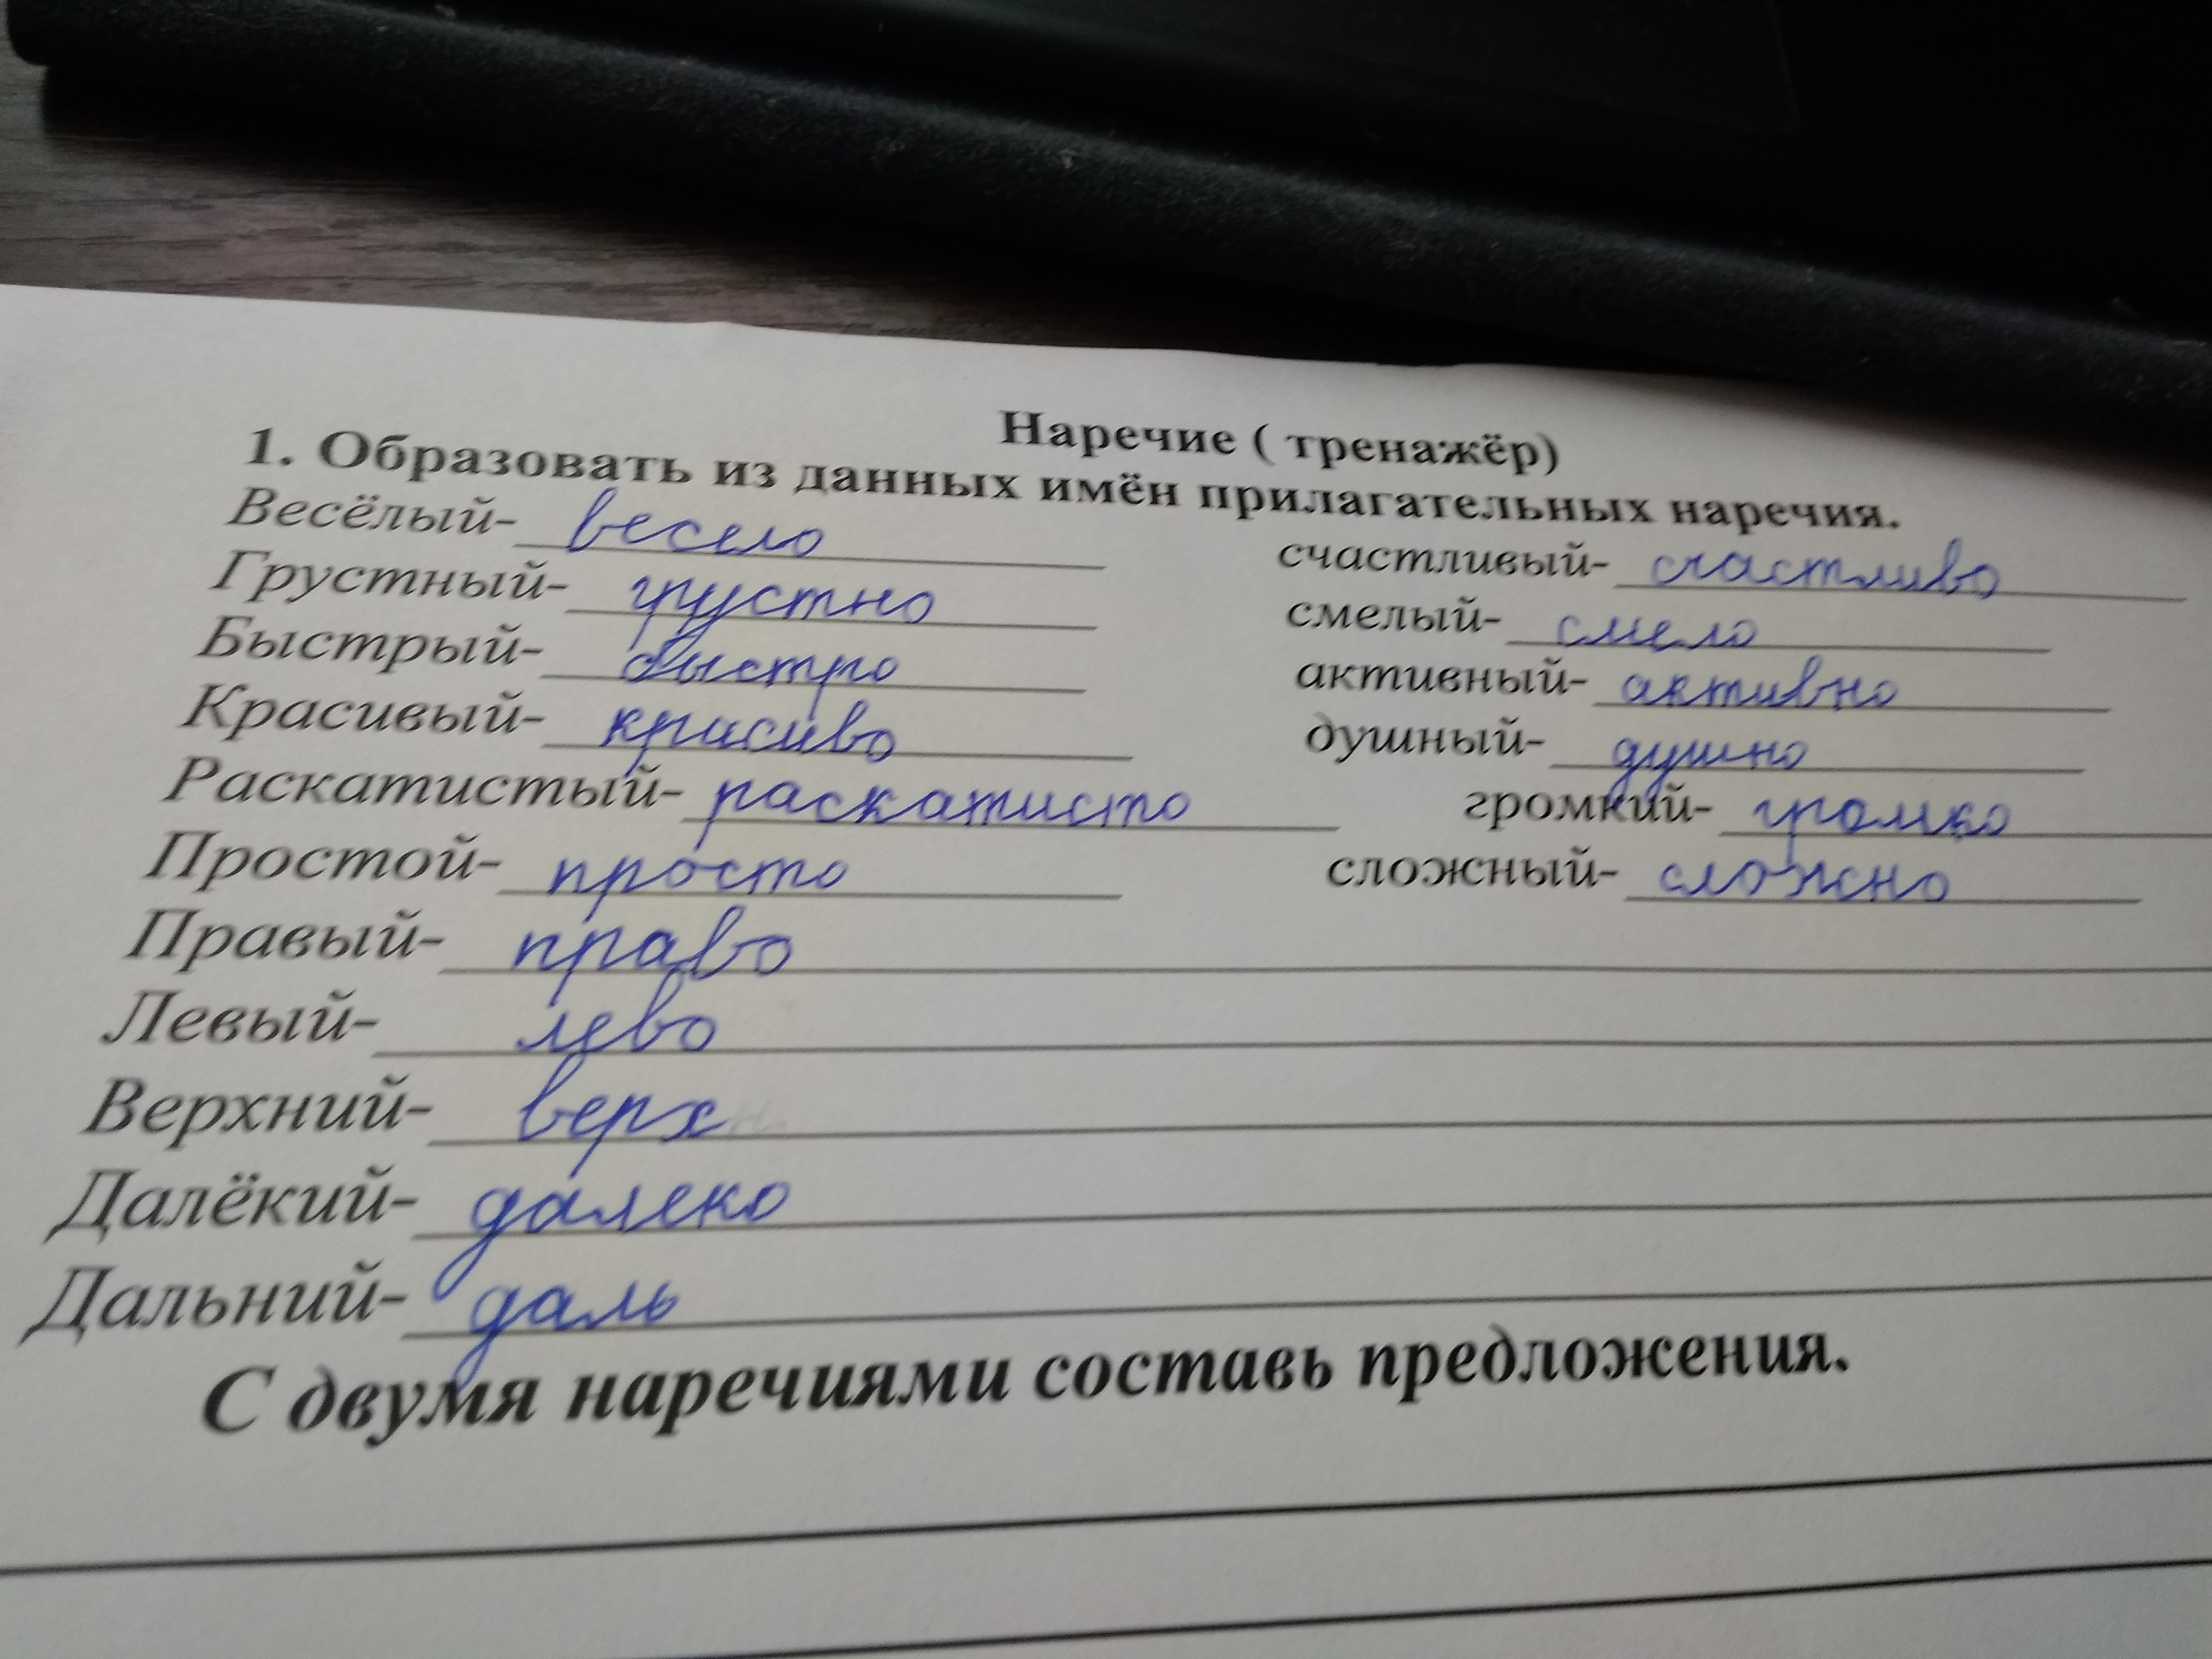 Наречие ( тренажёр)
1. Образовать из данных имён прилагательных наречия.
Весёлый- весело счастливый- счастливо
Грустный- грустно смелый- смело
Быстрый- быстро активный- активно
Красивый- красиво душный- душно
Раскатистый- раскатисто громкий- громко
Простой- просто сложный- сложно
Правый- право
Левый- лево
Верхний- верх
Далёкий- далеко
Дальний- даль
С двумя наречиями составь предложения.